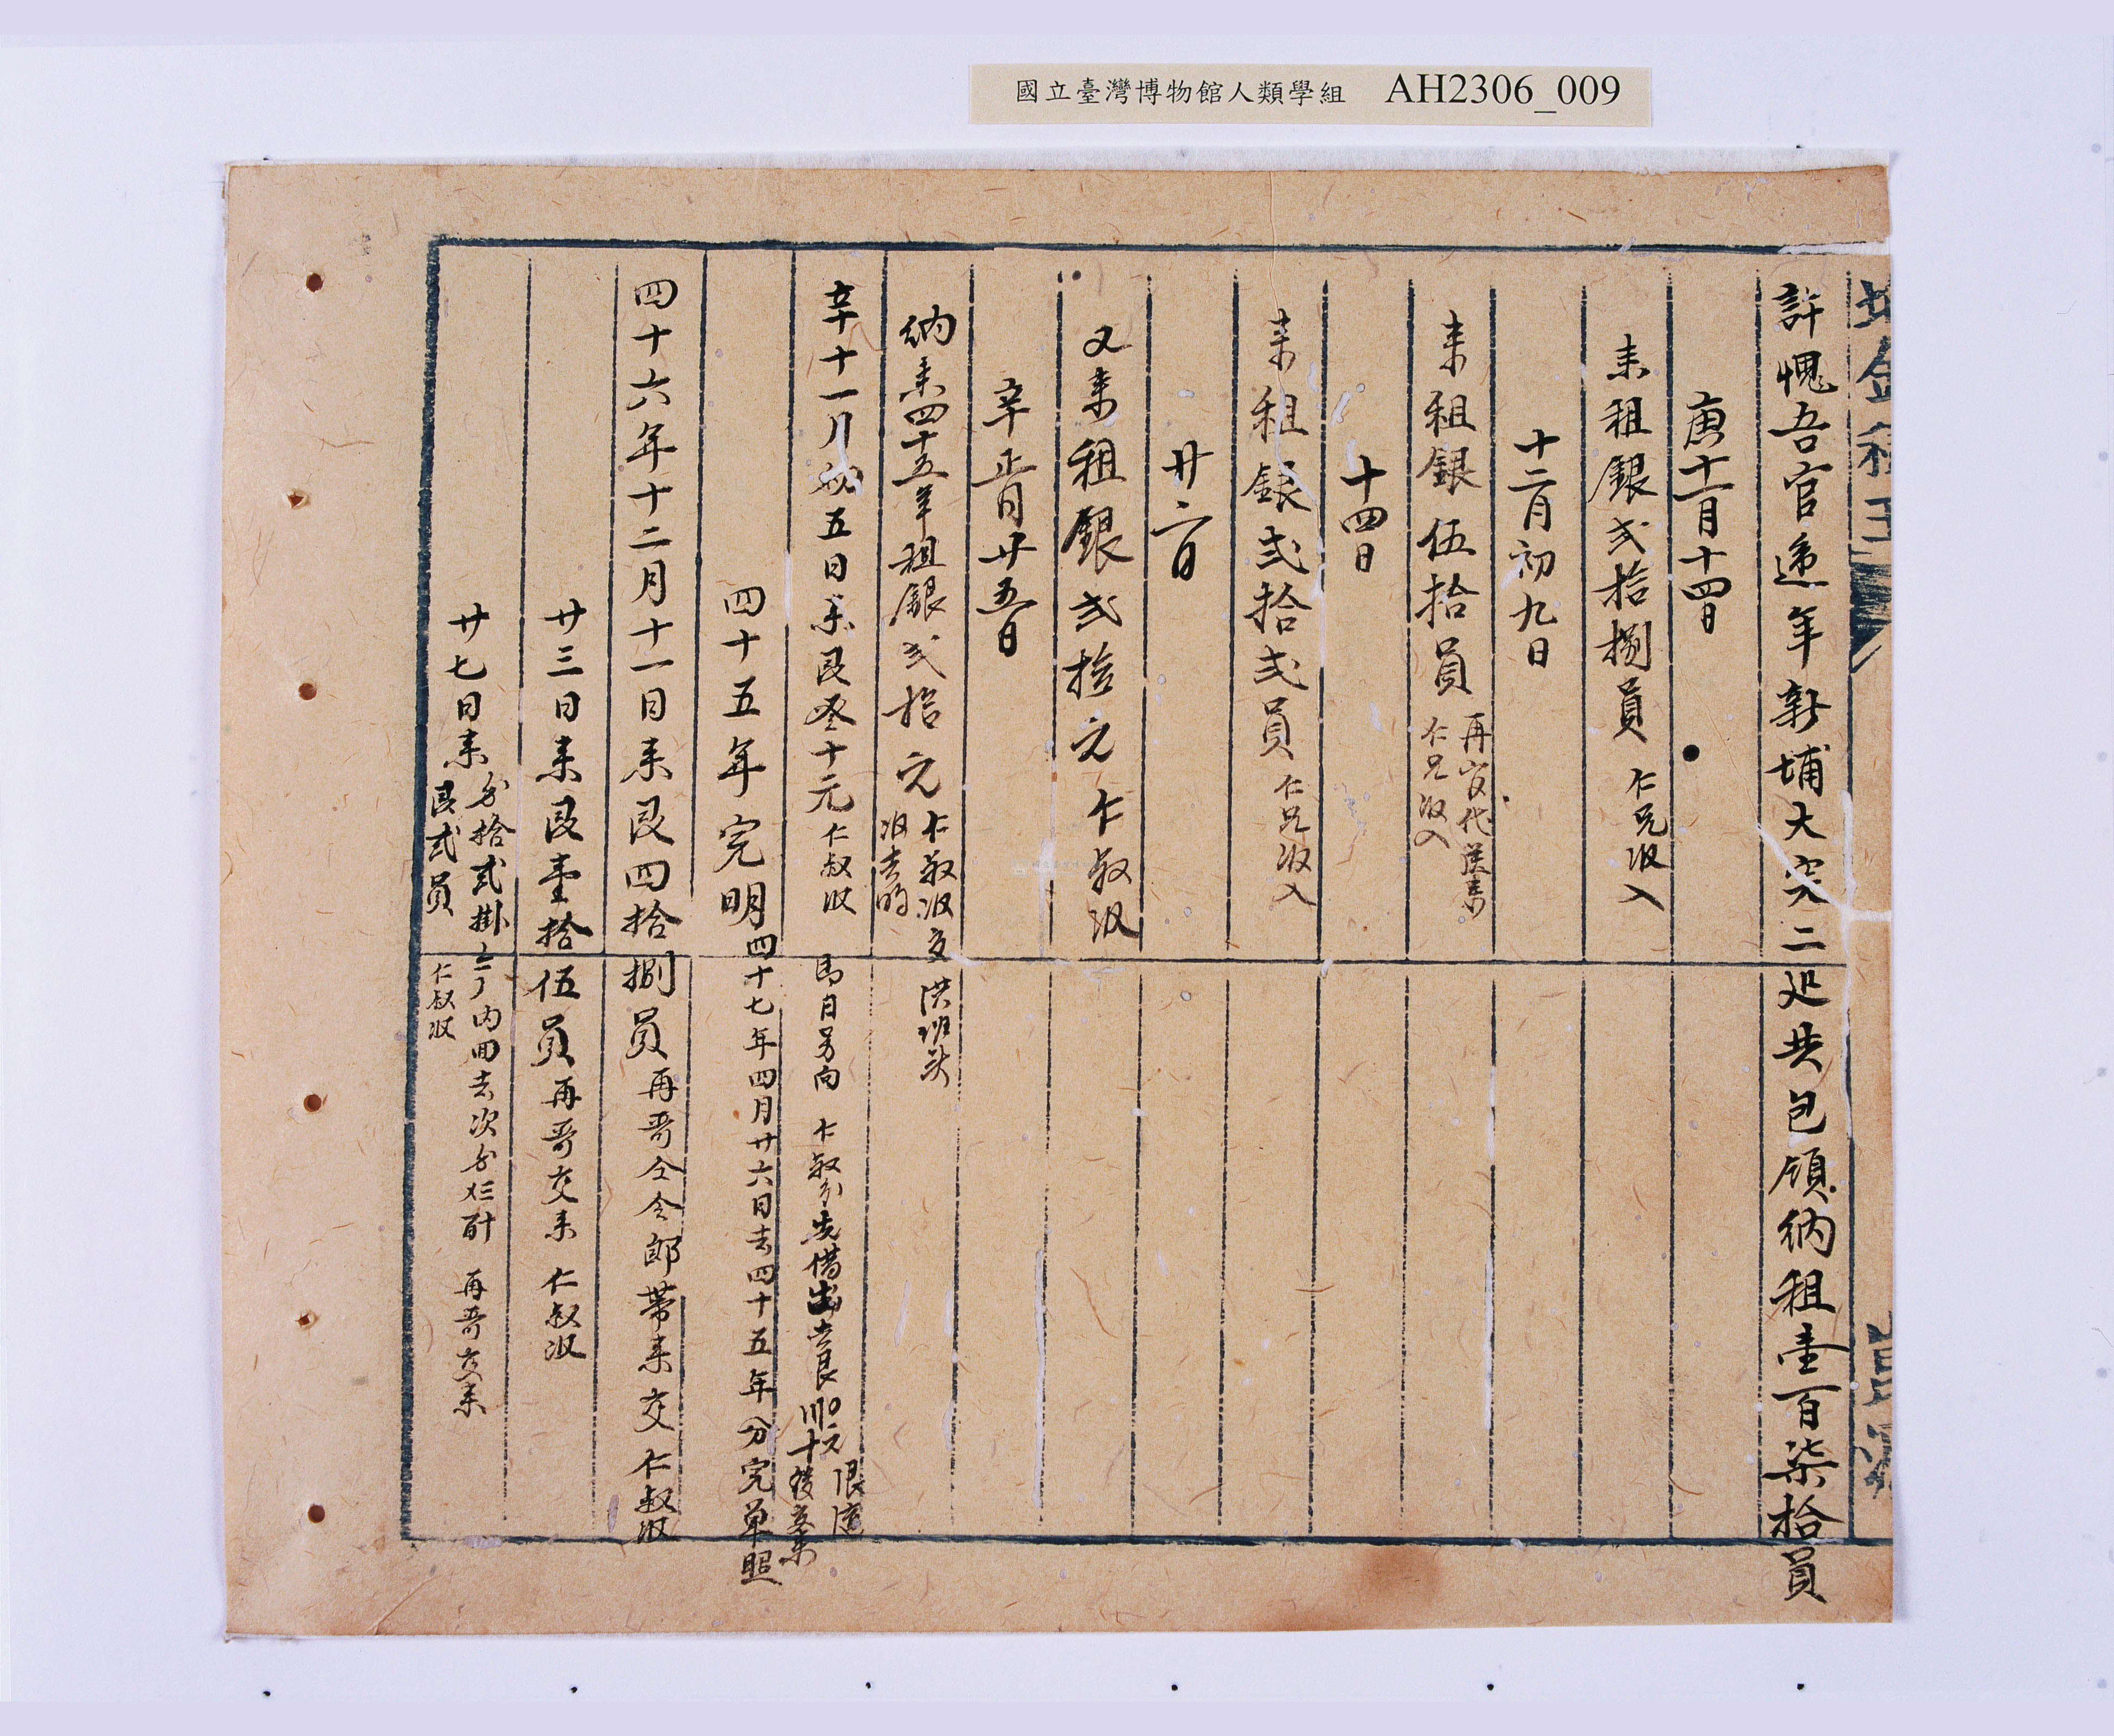 國立臺灣博物館人類學組 AH2306_009
許愧吾官遞年新埔大突二近共包領納租壹百柒拾員
庚十一月十四日
來租銀弍拾捌員 仁兄收入
十二月初九日
來租銀伍拾員 再官代送來 仁兄收入
十四日
來租銀弍拾弍員 仁兄收入
廿六日
又來租銀弍拾元 仁叔收
辛正月廿五日
納來四十五年租銀弍拾元 仁叔收交洪班头 收去的
辛十一月初五日來艮叁十元 仁叔收 即日另向仁叔 先借出 艮 元 限 十後交來
四十五年完明 四十七年四月廿六日去四十五年分完单照
四十六年十二月十一日來艮四拾捌員 再哥仝令郎帶來交 仁叔收
廿三日來艮壹拾伍員 再哥交來 仁叔收
廿七日來 拾弍掛 內回去次 再哥交來
艮弍員 仁叔收